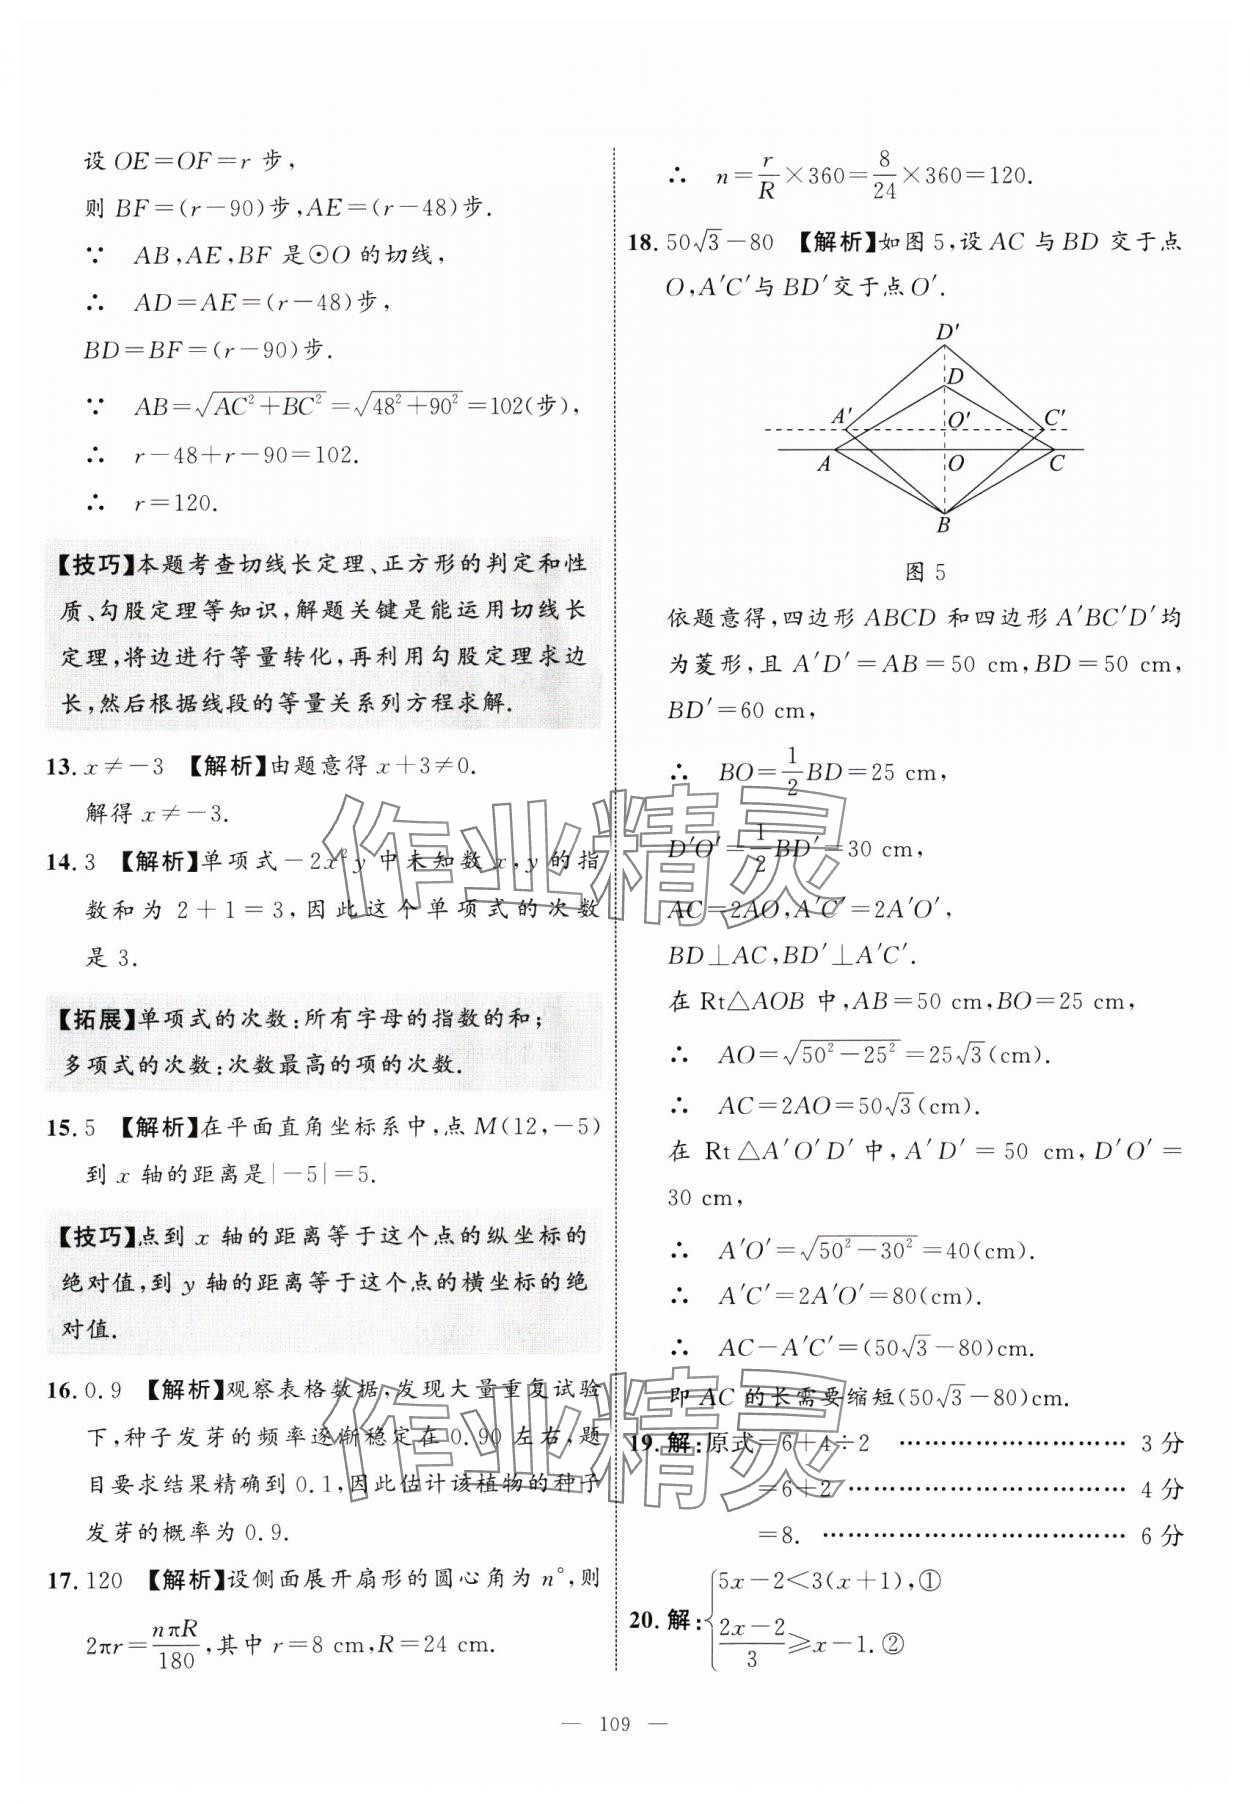 设 OE=OF=r 步,
则 BF=(r-90)步,AE=(r-48)步.
∵ AB,AE,BF 是⊙O 的切线,
∴ AD=AE=(r-48)步,
BD=BF=(r-90)步.
∵ AB=√(AC²+BC²)=√(48²+90²)=102(步),
∴ r-48+r-90=102.
∴ r=120.
【技巧】本题考查切线长定理、正方形的判定和性
质、勾股定理等知识,解题关键是能运用切线长
定理,将边进行等量转化,再利用勾股定理求边
长,然后根据线段的等量关系列方程求解.
13. x≠-3 【解析】由题意得 x+3≠0.
解得 x≠-3.
14. 3 【解析】单项式-2x²y 中未知数 x,y 的指
数和为 2+1=3,因此这个单项式的次数
是 3.
【拓展】单项式的次数:所有字母的指数的和;
多项式的次数:次数最高的项的次数.
15. 5 【解析】在平面直角坐标系中,点 M(12,-5)
到 x 轴的距离是|-5|=5.
【技巧】点到 x 轴的距离等于这个点的纵坐标的
绝对值,到 y 轴的距离等于这个点的横坐标的绝
对值.
16. 0.9 【解析】观察表格数据,发现大量重复试验
下,种子发芽的频率逐渐稳定在 0.90 左右,题
目要求结果精确到 0.1,因此估计该植物的种子
发芽的概率为 0.9.
17. 120 【解析】设侧面展开扇形的圆心角为 n°,则
2πr=nπR/180,其中 r=8 cm,R=24 cm.
∴ n=r/R×360=8/24×360=120.
18. 50√3-80 【解析】如图 5,设 AC 与 BD 交于点
O,A′C′与 BD′交于点 O′.
D′
D
A′ O′ C′
A O C
B
图 5
依题意得,四边形 ABCD 和四边形 A′BC′D′均
为菱形,且 A′D′=AB=50 cm,BD=50 cm,
BD′=60 cm,
∴ BO=1/2BD=25 cm,
D′O′=1/2BD′=30 cm,
AC=2AO,A′C′=2A′O′,
BD⊥AC,BD′⊥A′C′.
在 Rt△AOB 中,AB=50 cm,BO=25 cm,
∴ AO=√(50²-25²)=25√3(cm).
∴ AC=2AO=50√3(cm).
在 Rt△A′O′D′中,A′D′=50 cm,D′O′=
30 cm,
∴ A′O′=√(50²-30²)=40(cm).
∴ A′C′=2A′O′=80(cm).
∴ AC-A′C′=(50√3-80)cm.
即 AC 的长需要缩短(50√3-80)cm.
19. 解:原式=6+4÷2 …………………………… 3 分
=6+2 …………………………… 4 分
=8. …………………………… 6 分
20. 解:{5x-2<3(x+1),①
(2x-2)/3≥x-1.②
— 109 —
作业精灵
作业精灵